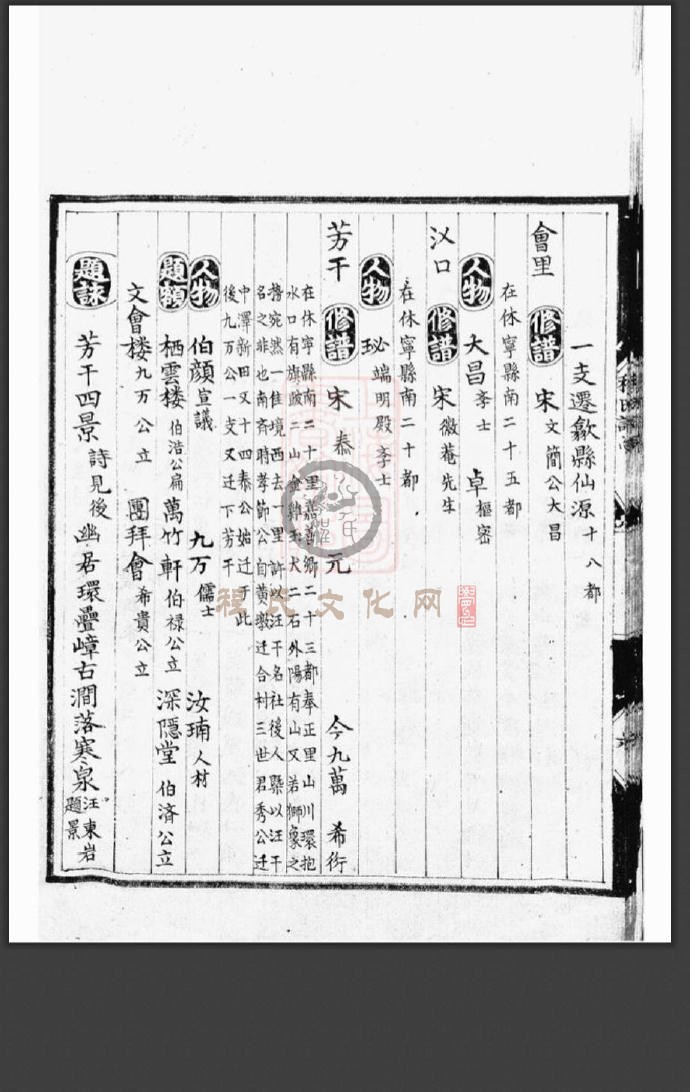 一支遷歙縣仙源十八都
會里 修譜 宋文簡公大昌
在休寧縣南二十五都
人物 大昌孛士 卓樞密
汊口 修譜 宋徽菴先生
在休寧縣南二十都
人物 珌端明殿孛士
芳干 修譜 宋泰 元 今九萬 希衍
在休寧縣南二十里嘉善鄉二十三都奉正里山川環抱
水口有旗皷二山金雞玉犬二石外陽有山又若獅象之
㨗宛然一佳境西去一里許以汪干名社後人槩以汪干
名之非也南齐時孝節公自黄墩迁合村三世君秀公迁
中澤新田又十四泰公始迁于此
後九万公一支又迁下芳干
人物 伯顔宣議 九万儒士 汝㻴人材
題額 栖雲楼伯浩公扁 萬竹軒伯禄公立 深隱堂伯済公立
文會楼九万公立 團拜會希貴公立
題詠 芳干四景詩見後 幽居環疊嶂古澗落寒泉汪東岩題景
程氏文化网